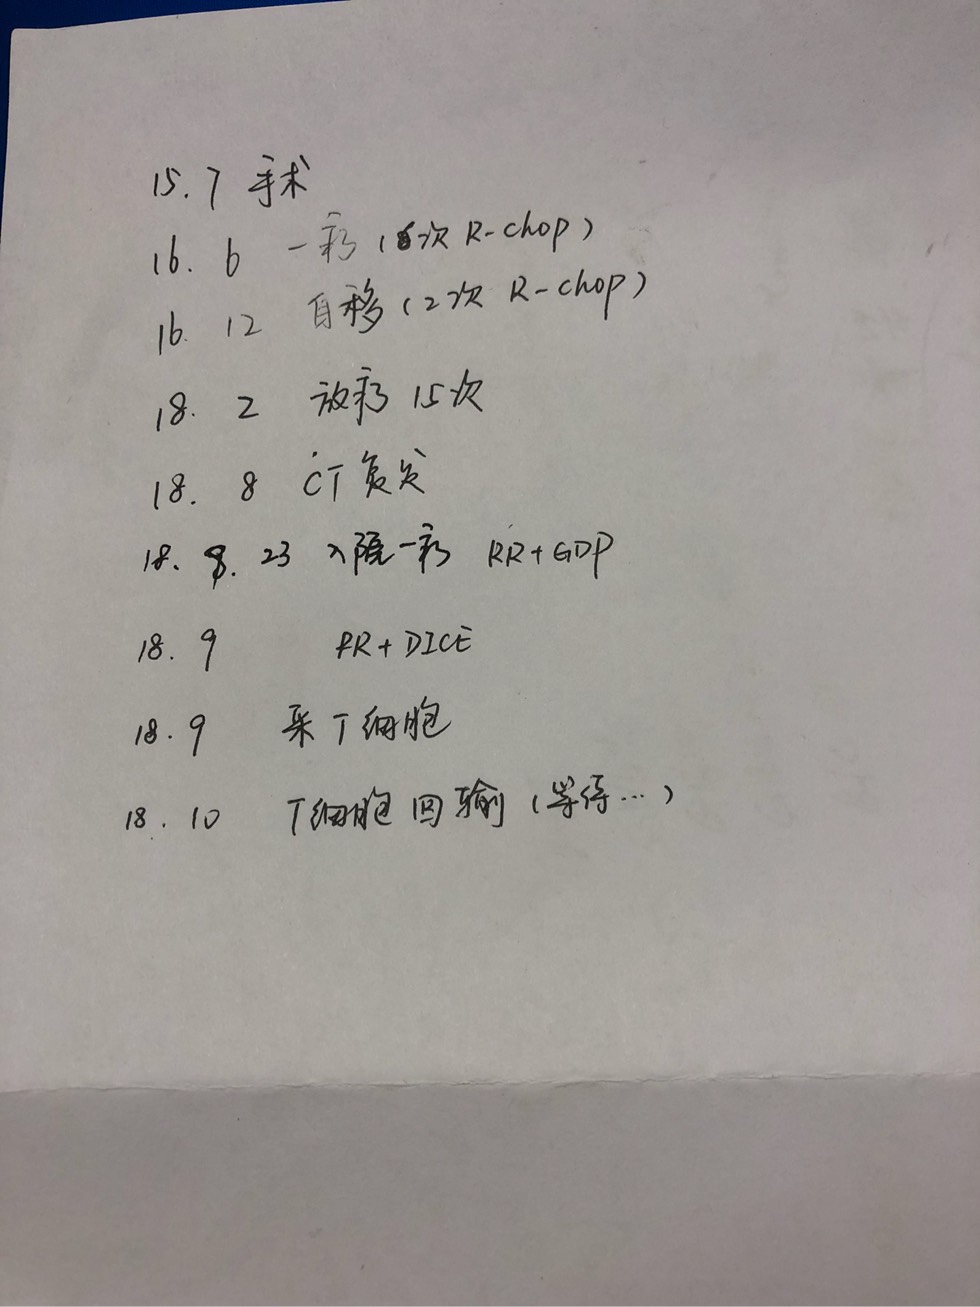 15.7 手术
16.6 一疗(6次 R-chop)
16.12 自移(2次 R-chop)
18.2 放疗 15次
18.8 CT 复发
18.8.23 入院一疗 RR+GDP
18.9 RR+DICE
18.9 采T细胞
18.10 T细胞回输(等待…)